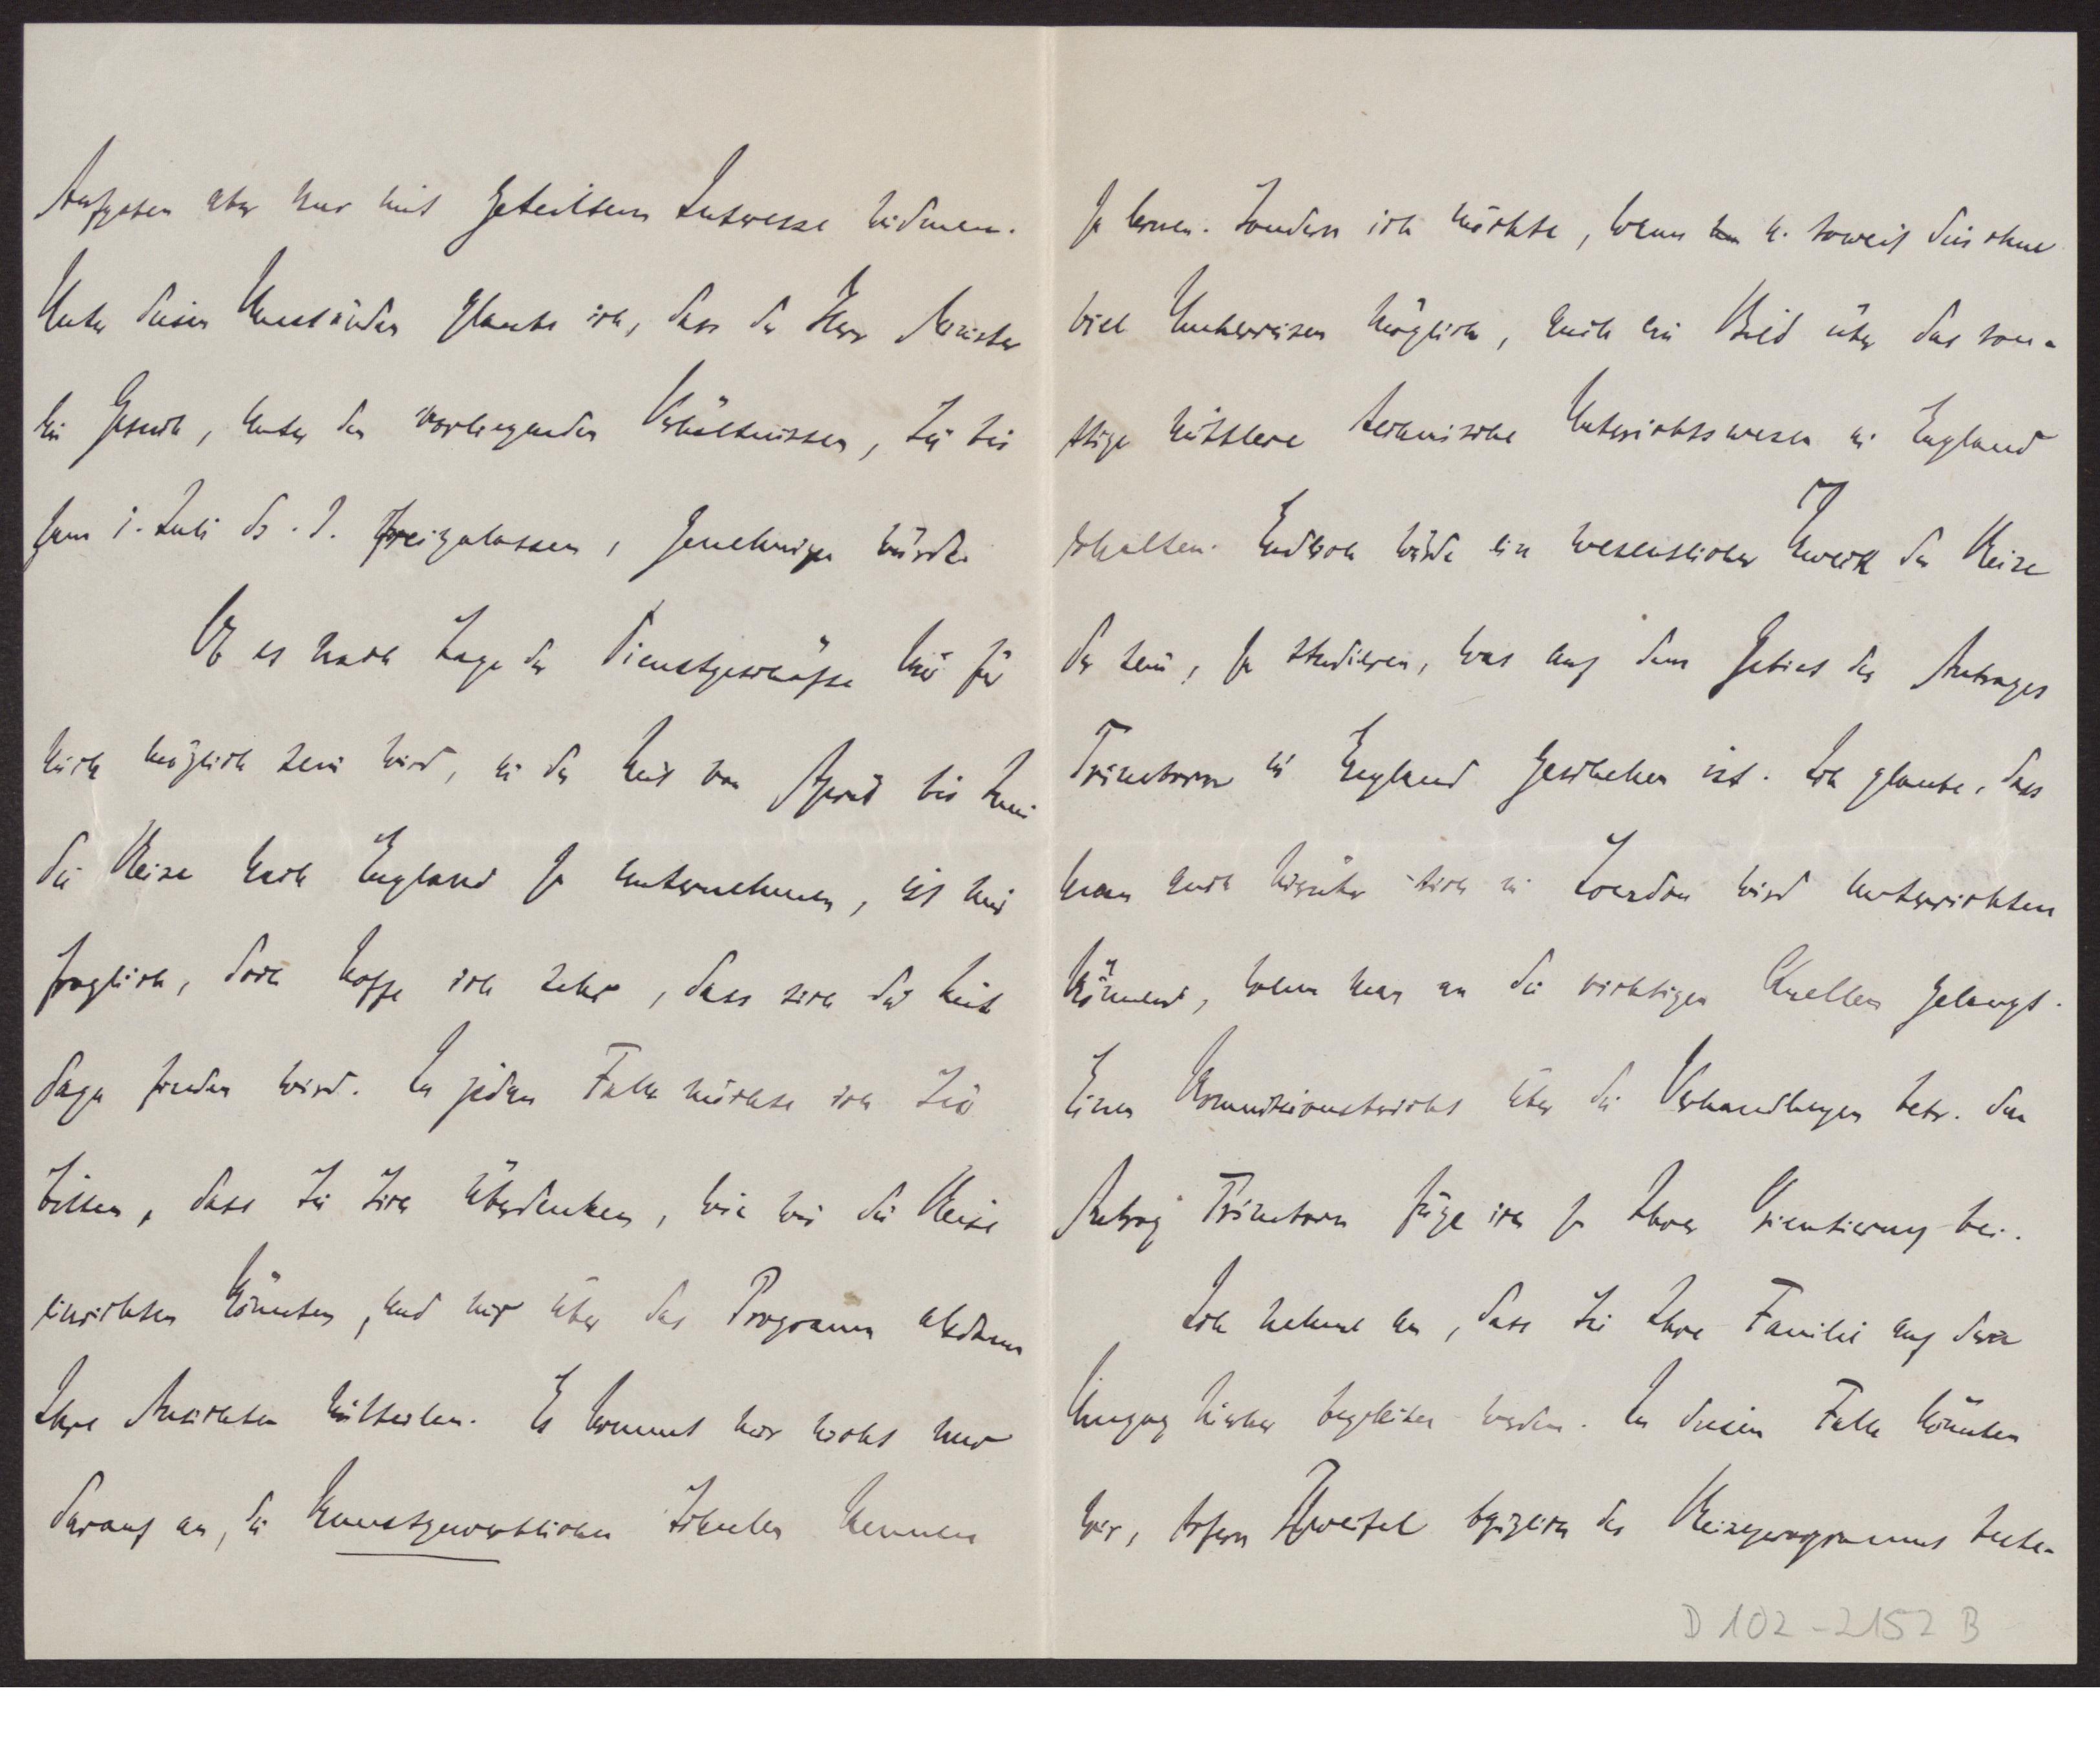 Aufgaben aber nur mit geteiltem Interesse widmen.
Unter diesen Umständen glaube ich, dass der Herr Minister
ein Gesuch, unter den vorliegenden Verhältnissen, Sie bis
zum 1. Juli ds. J. freizulassen, genehmigen würde.
Ob es nach Lage der Dienstgeschäfte hier für
mich möglich sein wird, in der Zeit von April bis Juni
die Reise nach England zu unternehmen, ist mir
fraglich, doch hoffe ich sehr, dass sich die Zeit
dazu finden wird. In jedem Falle möchte ich Sie
bitten, dass Sie sich überdenken, wie wir die Reise
einrichten könnten, und mir über das Programm alsdann
Ihre Ansichten mitteilen. Es kommt mir nicht nur
darauf an, die kunstgewerblichen Schulen kennen
zu lernen. Sondern ich möchte, wenn u. soweit dies ohne
viel Umherreisen möglich, auch ein Bild über das son-
stige mittlere technische Unterrichtswesen in England
erhalten. Endlich würde ein wesentlicher Zweck der Reise
der sein, zu studieren, was auf dem Gebiet des Antrages
Trimborn in England geschehen ist. Ich glaube, dass
man auch hierüber sich in London wird unterrichten
können, wenn man an die richtigen Quellen gelangt.
Einen Kommissionsbericht über die Verhandlungen betr. den
Antrag Trimborn füge ich zu Ihrer Orientierung bei.
Ich nehme an, dass Sie Ihre Familie auf dem
Umzug hierher begleiten werden. In diesem Falle könnten
wir, sofern Zweifel bezüglich des Reiseprogramms beste-
D 102-2152 B